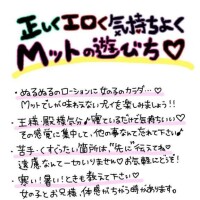 正しくエロく気持ちよく
Mットの遊びち♡
・ぬるぬるのローションに女の子のカラダ…♡
マットでしか味わえないプレイを楽しみましょう!!
・王様、殿様気分♪寝ているだけで気持ちいい♡
その感覚に集中して、他の事なんて忘れて下さい♪
・苦手・くすぐったい箇所は、"先に"伝えてね♡
遠慮なんて一切いりません♡お気軽にどうぞ!
・寒い!暑い!ときも教えて下さい♡
女の子とお兄様、体感がちがう時があります。